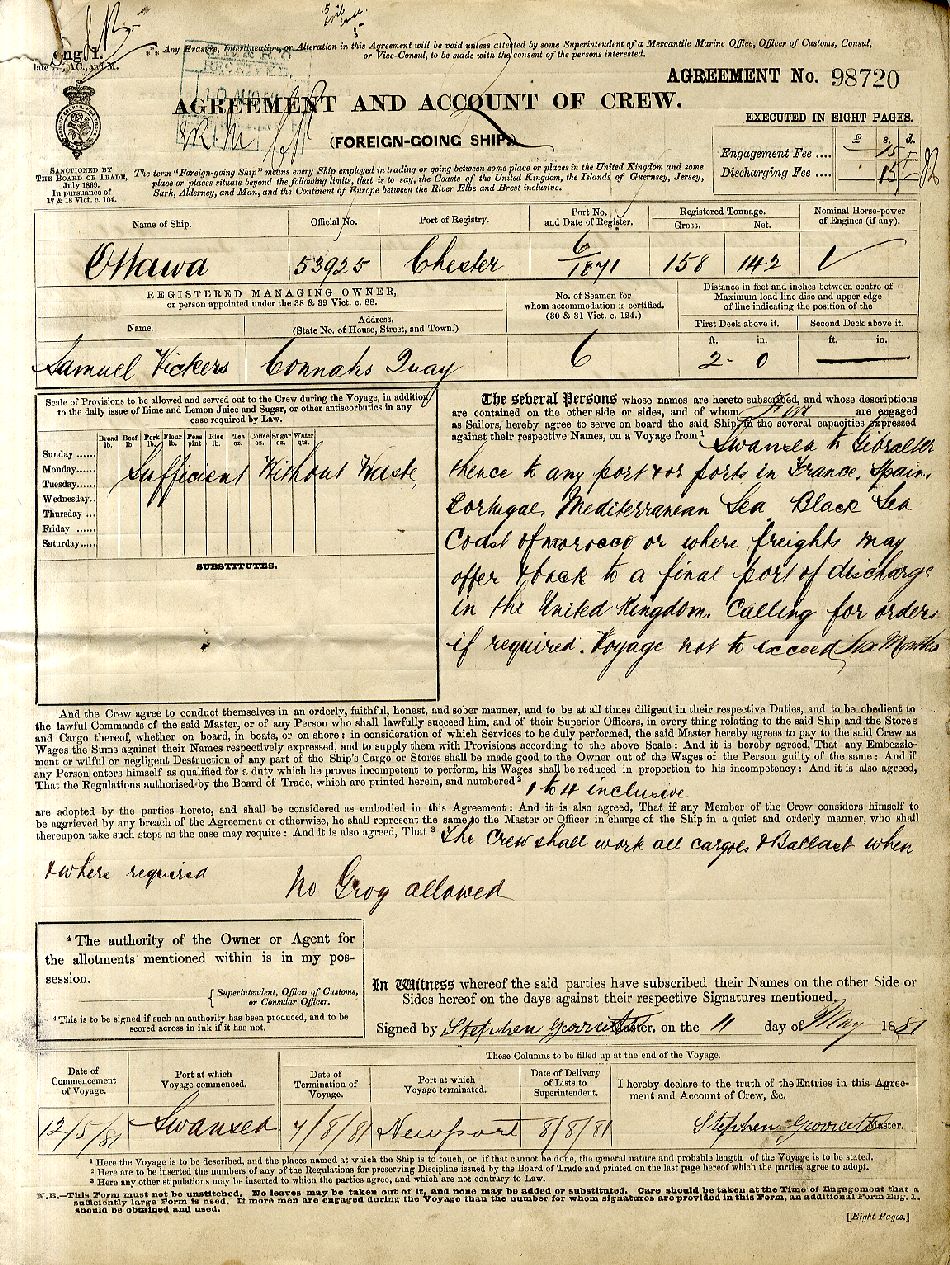 Eng. 1.
Any Erasure, Interlineation, or Alteration in this Agreement will be void unless attested by some Superintendent of a Mercantile Marine Office, Officer of Customs, Consul,
or Vice-Consul, to be made with the consent of the persons interested.
AGREEMENT No. 98720
AGREEMENT AND ACCOUNT OF CREW.
EXECUTED IN EIGHT PAGES.
(FOREIGN-GOING SHIP.)
£ s. d.
Engagement Fee ....
Discharging Fee ....
SANCTIONED BY
THE BOARD OF TRADE,
July 1880.
In pursuance of
17 & 18 Vict. c. 104.
The term "Foreign-going Ship" means every Ship employed in trading or going between some place or places in the United Kingdom and some
place or places situate beyond the following limits, that is to say, the Coasts of the United Kingdom, the Islands of Guernsey, Jersey,
Sark, Alderney, and Man, and the Continent of Europe between the River Elbe and Brest inclusive.
Name of Ship. Official No. Port of Registry. Port No. and Date of Register. Registered Tonnage. Gross. Net. Nominal Horse-power of Engines (if any).
Ottawa 53925 Chester 6/1871 158 142
REGISTERED MANAGING OWNER,
or person appointed under the 38 & 39 Vict. c. 88.
No. of Seamen for whom accommodation is certified. (30 & 31 Vict. c. 124.)
Distance in feet and inches between centre of
Maximum load line disc and upper edge
of line indicating the position of the
Name. Address. (State No. of House, Street, and Town.) First Deck above it. Second Deck above it.
ft. in. ft. in.
Samuel Vickers Connahs Quay 6 2 - 0
Scale of Provisions to be allowed and served out to the Crew during the Voyage, in addition
to the daily issue of Lime and Lemon Juice and Sugar, or other antiscorbutics in any
case required by Law.
Sunday
Monday
Tuesday
Wednesday
Thursday
Friday
Saturday
Sufficient Without Waste
SUBSTITUTES.
The several Persons whose names are hereto subscribed, and whose descriptions
are contained on the other side or sides, and of whom are engaged
as Sailors, hereby agree to serve on board the said Ship, in the several capacities expressed
against their respective Names, on a Voyage from¹ Swansea to Gibralter
thence to any port & or ports in France. Spain.
Portugal, Mediterranean Sea, Black Sea
Coast of morocco or where freights may
offer & back to a final port of discharge
in the United Kingdom. Calling for orders
if required. Voyage not to exceed Six Months
And the Crew agree to conduct themselves in an orderly, faithful, honest, and sober manner, and to be at all times diligent in their respective Duties, and to be obedient to
the lawful Commands of the said Master, or of any Person who shall lawfully succeed him, and of their Superior Officers, in every thing relating to the said Ship and the Stores
and Cargo thereof, whether on board, in boats, or on shore: in consideration of which Services to be duly performed, the said Master hereby agrees to pay to the said Crew as
Wages the Sums against their Names respectively expressed, and to supply them with Provisions according to the above Scale: And it is hereby agreed, That any Embezzle-
ment or wilful or negligent Destruction of any part of the Ship's Cargo or Stores shall be made good to the Owner out of the Wages of the Person guilty of the same: And if
any Person enters himself as qualified for a duty which he proves incompetent to perform, his Wages shall be reduced in proportion to his incompetency: And it is also agreed,
That the Regulations authorised by the Board of Trade, which are printed herein, and numbered² 1 to 4 inclusive
are adopted by the parties hereto, and shall be considered as embodied in this Agreement: And it is also agreed, That if any Member of the Crew considers himself to
be aggrieved by any breach of the Agreement or otherwise, he shall represent the same to the Master or Officer in charge of the Ship in a quiet and orderly manner, who shall
thereupon take such steps as the case may require: And it is also agreed, That³ The Crew shall work all cargoes & Ballast when
& where required
No Grog allowed
⁴ The authority of the Owner or Agent for
the allotments mentioned within is in my pos-
session.
Superintendent, Officer of Customs,
or Consular Officer.
⁴ This is to be signed if such an authority has been produced, and to be
scored across in ink if it has not.
In Witness whereof the said parties have subscribed their Names on the other Side or
Sides hereof on the days against their respective Signatures mentioned.
Signed by Stephen Master, on the 11 day of May 1881
These Columns to be filled up at the end of the Voyage.
Date of Commencement of Voyage. Port at which Voyage commenced. Date of Termination of Voyage. Port at which Voyage terminated. Date of Delivery of Lists to Superintendent. I hereby declare to the truth of the Entries in this Agree-
ment and Account of Crew, &c.
12/5/81 Swansea 7/8/81 Newport 8/8/81 Stephen Master.
¹ Here the Voyage is to be described, and the places named at which the Ship is to touch, or if that cannot be done, the general nature and probable length of the Voyage is to be stated.
² Here are to be inserted the numbers of any of the Regulations for preserving Discipline issued by the Board of Trade and printed on the last page hereof which the parties agree to adopt.
³ Here any other stipulations may be inserted to which the parties agree, and which are not contrary to Law.
N.B.—This Form must not be unstitched. No leaves may be taken out of it, and none may be added or substituted. Care should be taken at the Time of Engagement that a
sufficiently large Form is used. If more men are engaged during the Voyage than the number for whom signatures are provided in this Form, an additional Form Eng. 1.
should be obtained and used.
[Eight Pages.]